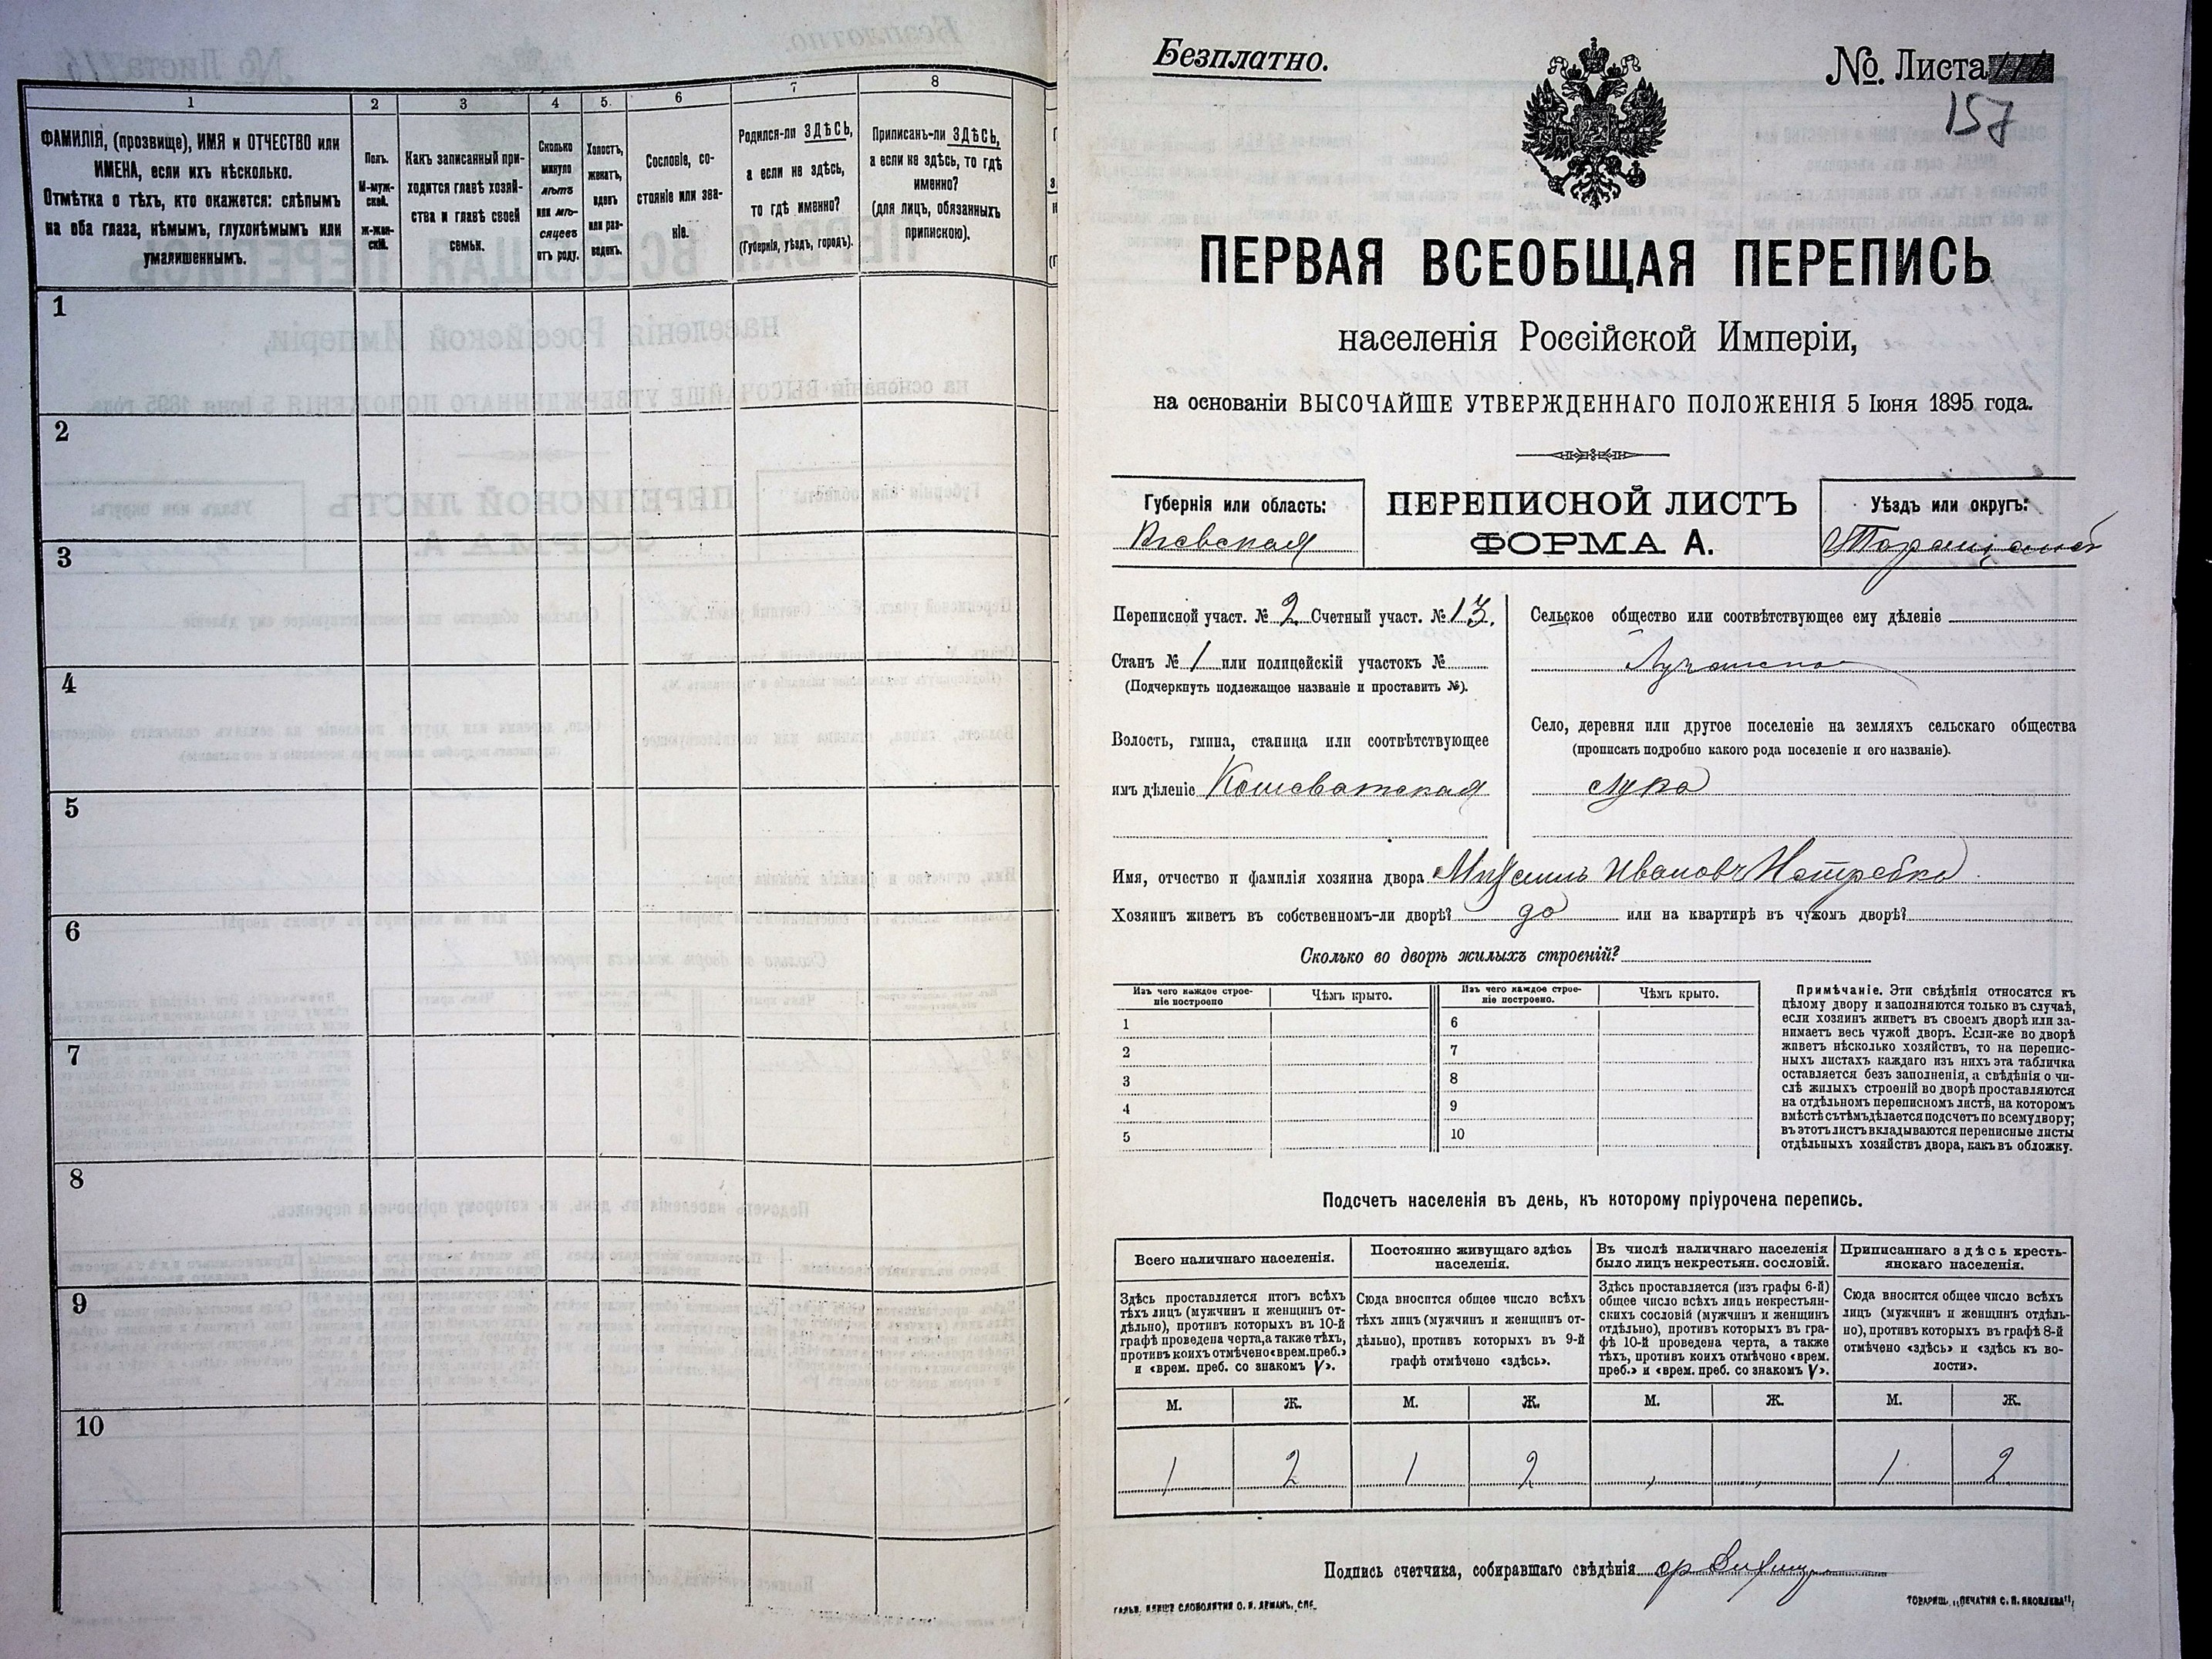 1
2
3
4
5.
6
7
8
ФАМИЛІЯ, (прозвище), ИМЯ и ОТЧЕСТВО или
ИМЕНА, если ихъ нѣсколько.
Отмѣтка о тѣхъ, кто окажется: слѣпымъ
на оба глаза, нѣмымъ, глухонѣмымъ или
умалишеннымъ.
Полъ.
М-муж-
ской.
ж-жен-
скій.
Какъ записанный при-
ходится главѣ хозяй-
ства и главѣ своей
семьи.
Сколько
минуло
лѣтъ
или мѣ-
сяцевъ
отъ роду.
Холостъ,
женатъ,
вдовъ
или раз-
веденъ.
Сословіе, со-
стояніе или зва-
ніе.
Родился-ли ЗДѢСЬ,
а если не здѣсь,
то гдѣ именно?
(Губернія, уѣздъ, городъ).
Приписанъ-ли ЗДѢСЬ,
а если не здѣсь, то гдѣ
именно?
(для лицъ, обязанныхъ
припискою).
1
2
3
4
5
6
7
8
9
10
Безплатно.
№. Листа
157
ПЕРВАЯ ВСЕОБЩАЯ ПЕРЕПИСЬ
населенія Россійской Имперіи,
на основаніи ВЫСОЧАЙШЕ УТВЕРЖДЕННАГО ПОЛОЖЕНІЯ 5 Іюня 1895 года.
Губернія или область:
Кіевская
ПЕРЕПИСНОЙ ЛИСТЪ
ФОРМА А.
Уѣздъ или округъ:
Таращанскій
Переписной участ. № 2 Счетный участ. № 13.
Станъ № 1 или полицейскій участокъ №
(Подчеркнуть подлежащее названіе и проставить №).
Волость, гмина, станица или соотвѣтствующее
имъ дѣленіе Кошеватская
Сельское общество или соотвѣтствующее ему дѣленіе
Лучанское
Село, деревня или другое поселеніе на земляхъ сельскаго общества
(прописать подробно какого рода поселеніе и его названіе).
Лука
Имя, отчество и фамилія хозяина двора Иванов Нетребко
Хозяинъ живетъ въ собственномъ-ли дворѣ? да или на квартирѣ въ чужомъ дворѣ?
Сколько во дворѣ жилыхъ строеній?
Изъ чего каждое строе-
ніе построено
Чѣмъ крыто.
Изъ чего каждое строе-
ніе построено.
Чѣмъ крыто.
1
2
3
4
5
6
7
8
9
10
Примѣчаніе. Эти свѣдѣнія относятся къ
цѣлому двору и заполняются только въ случаѣ,
если хозяинъ живетъ въ своемъ дворѣ или за-
нимаетъ весь чужой дворъ. Если-же во дворѣ
живетъ нѣсколько хозяйствъ, то на перепис-
ныхъ листахъ каждаго изъ нихъ эта табличка
оставляется безъ заполненія, а свѣдѣнія о чи-
слѣ жилыхъ строеній во дворѣ проставляются
на отдѣльномъ переписномъ листѣ, на которомъ
вмѣстѣ съ тѣмъ дѣлается подсчетъ по всему двору;
въ этотъ листъ вкладываются переписные листы
отдѣльныхъ хозяйствъ двора, какъ въ обложку.
Подсчетъ населенія въ день, къ которому пріурочена перепись.
Всего наличнаго населенія.
Здѣсь проставляется итогъ всѣхъ
тѣхъ лицъ (мужчинъ и женщинъ от-
дѣльно), противъ которыхъ въ 10-й
графѣ проведена черта, а также тѣхъ,
противъ коихъ отмѣчено «врем. преб.»
и «врем. преб. со знакомъ V».
Постоянно живущаго здѣсь
населенія.
Сюда вносится общее число всѣхъ
тѣхъ лицъ (мужчинъ и женщинъ от-
дѣльно), противъ которыхъ въ 9-й
графѣ отмѣчено «здѣсь».
Въ числѣ наличнаго населенія
было лицъ некрестьян. сословій.
Здѣсь проставляется (изъ графы 6-й)
общее число всѣхъ лицъ некрестьян-
скихъ сословій (мужчинъ и женщинъ
отдѣльно), противъ которыхъ въ гра-
фѣ 10-й проведена черта, а также
тѣхъ, противъ коихъ отмѣчено «врем.
преб.» и «врем. преб. со знакомъ V».
Приписаннаго здѣсь кресть-
янскаго населенія.
Сюда вносится общее число всѣхъ
лицъ (мужчинъ и женщинъ отдѣль-
но), противъ которыхъ въ графѣ 8-й
отмѣчено «здѣсь» и «здѣсь къ во-
лости».
М. Ж. М. Ж. М. Ж. М. Ж.
1 2 1 2 1 2
Подпись счетчика, собиравшаго свѣдѣнія
ТОВАРИЩ. „ПЕЧАТНЯ С. П. ЯКОВЛЕВА“